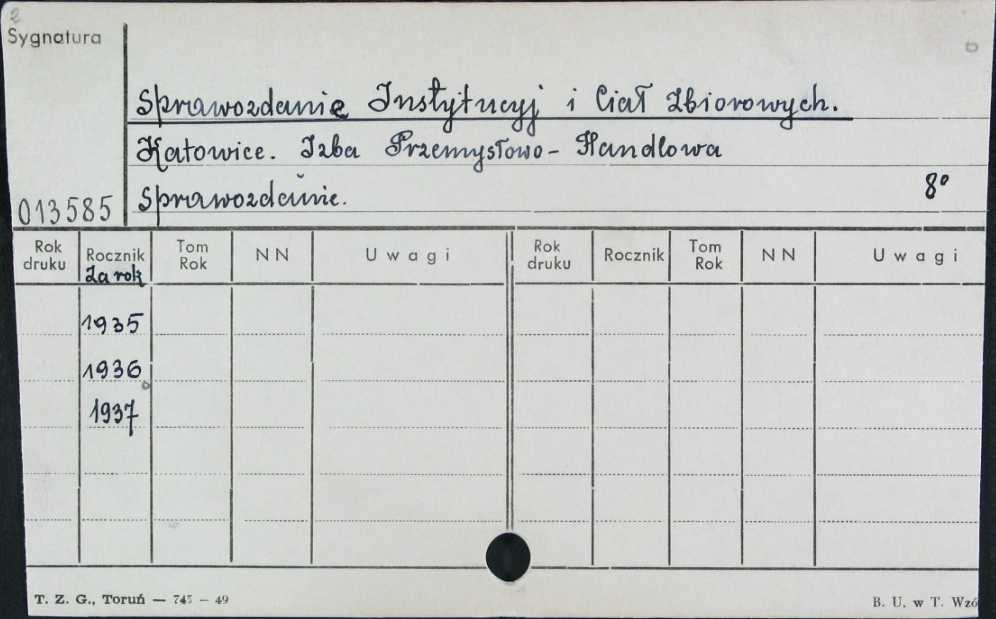 Sygnatura
Sprawozdanie Instytucyj i Ciał Zbiorowych.
Katowice. Izba Przemysłowo-Handlowa
Sprawozdanie. 8°
013585
Rok druku Rocznik Za rok Tom Rok NN Uwagi Rok druku Rocznik Tom Rok NN Uwagi
1935
1936
1937
T. Z. G., Toruń — 745 — 49 B. U. w T. Wzó